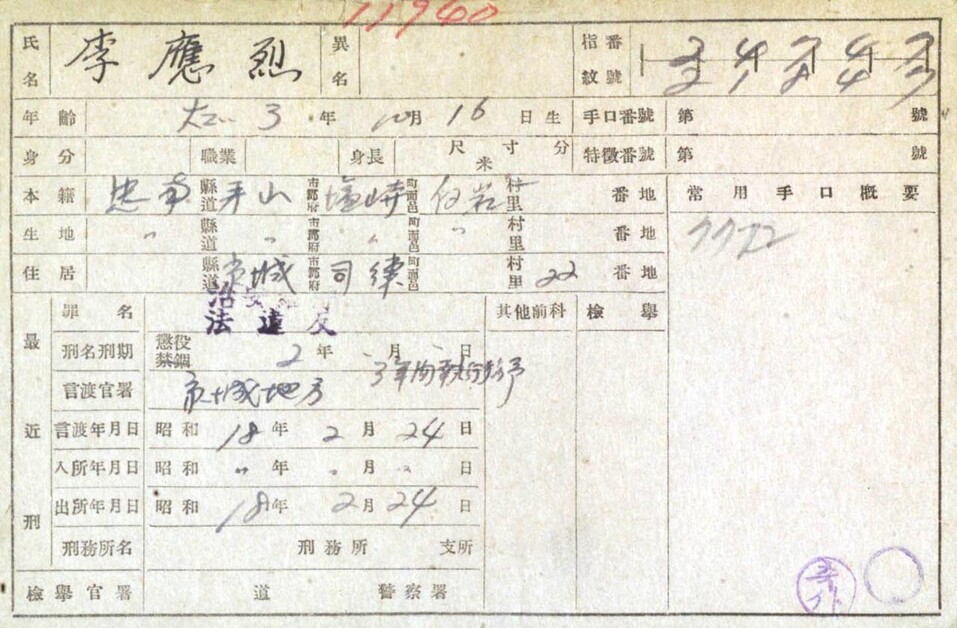 11960
氏名 李應烈 異名 指紋番號
年齡 大正 3 年 10月 16 日生 手口番號 第 號
身分 職業 身長 尺寸分 米 特徵番號 第 號
本籍 忠南 縣道 牙山 市郡府 塩峙 町面邑 白岩 村里 番地 常用手口槪要
生地 〃 縣道 〃 市郡府 〃 町面邑 〃 村里 番地 7772
住居 縣道 京城 市郡府 司練 町面邑 村里 22 番地
最近刑
罪名 治安 法違反 其他前科 檢擧
刑名刑期 懲役 禁錮 2 年 月 日
3年間執行猶予
言渡官署 京城地方
言渡年月日 昭和 18 年 2 月 24 日
入所年月日 昭和 〃 年 〃 月 〃 日
出所年月日 昭和 18 年 2 月 24 日
刑務所名 刑務所 支所
檢擧官署 道 警察署